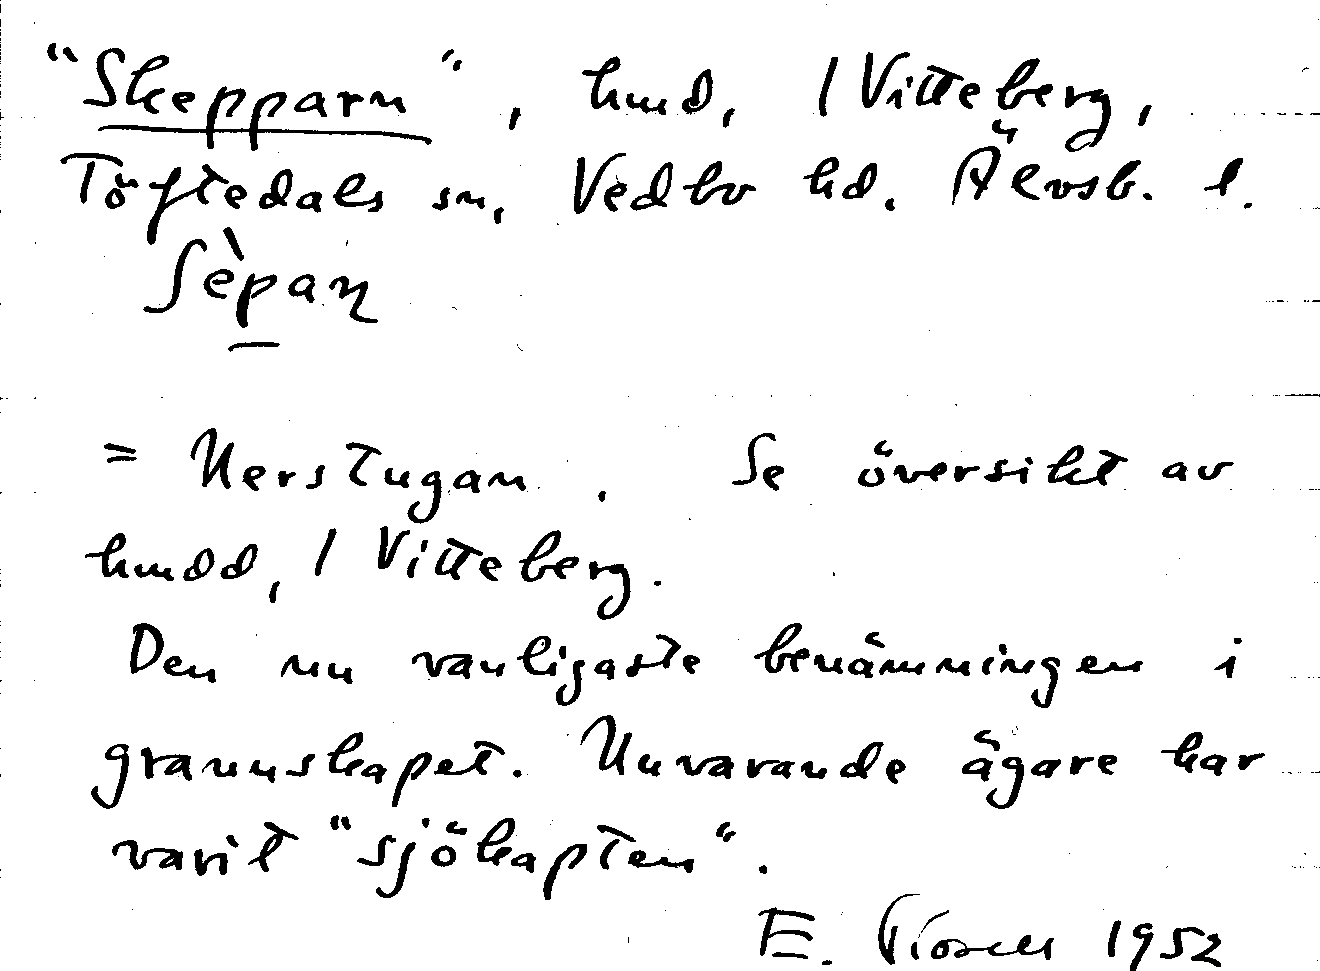 "Skepparn", hmd, 1 Vitteberg,
Töftedals sn, Vedbo hd. Älvsb. l.
Sèpaɳ
= Nerstugan. Se översikt av
hmdd, 1 Vitteberg.
Den nu vanligaste benämningen i
grannskapet. Nuvarande ägare har
varit "sjökapten".
E. 1952